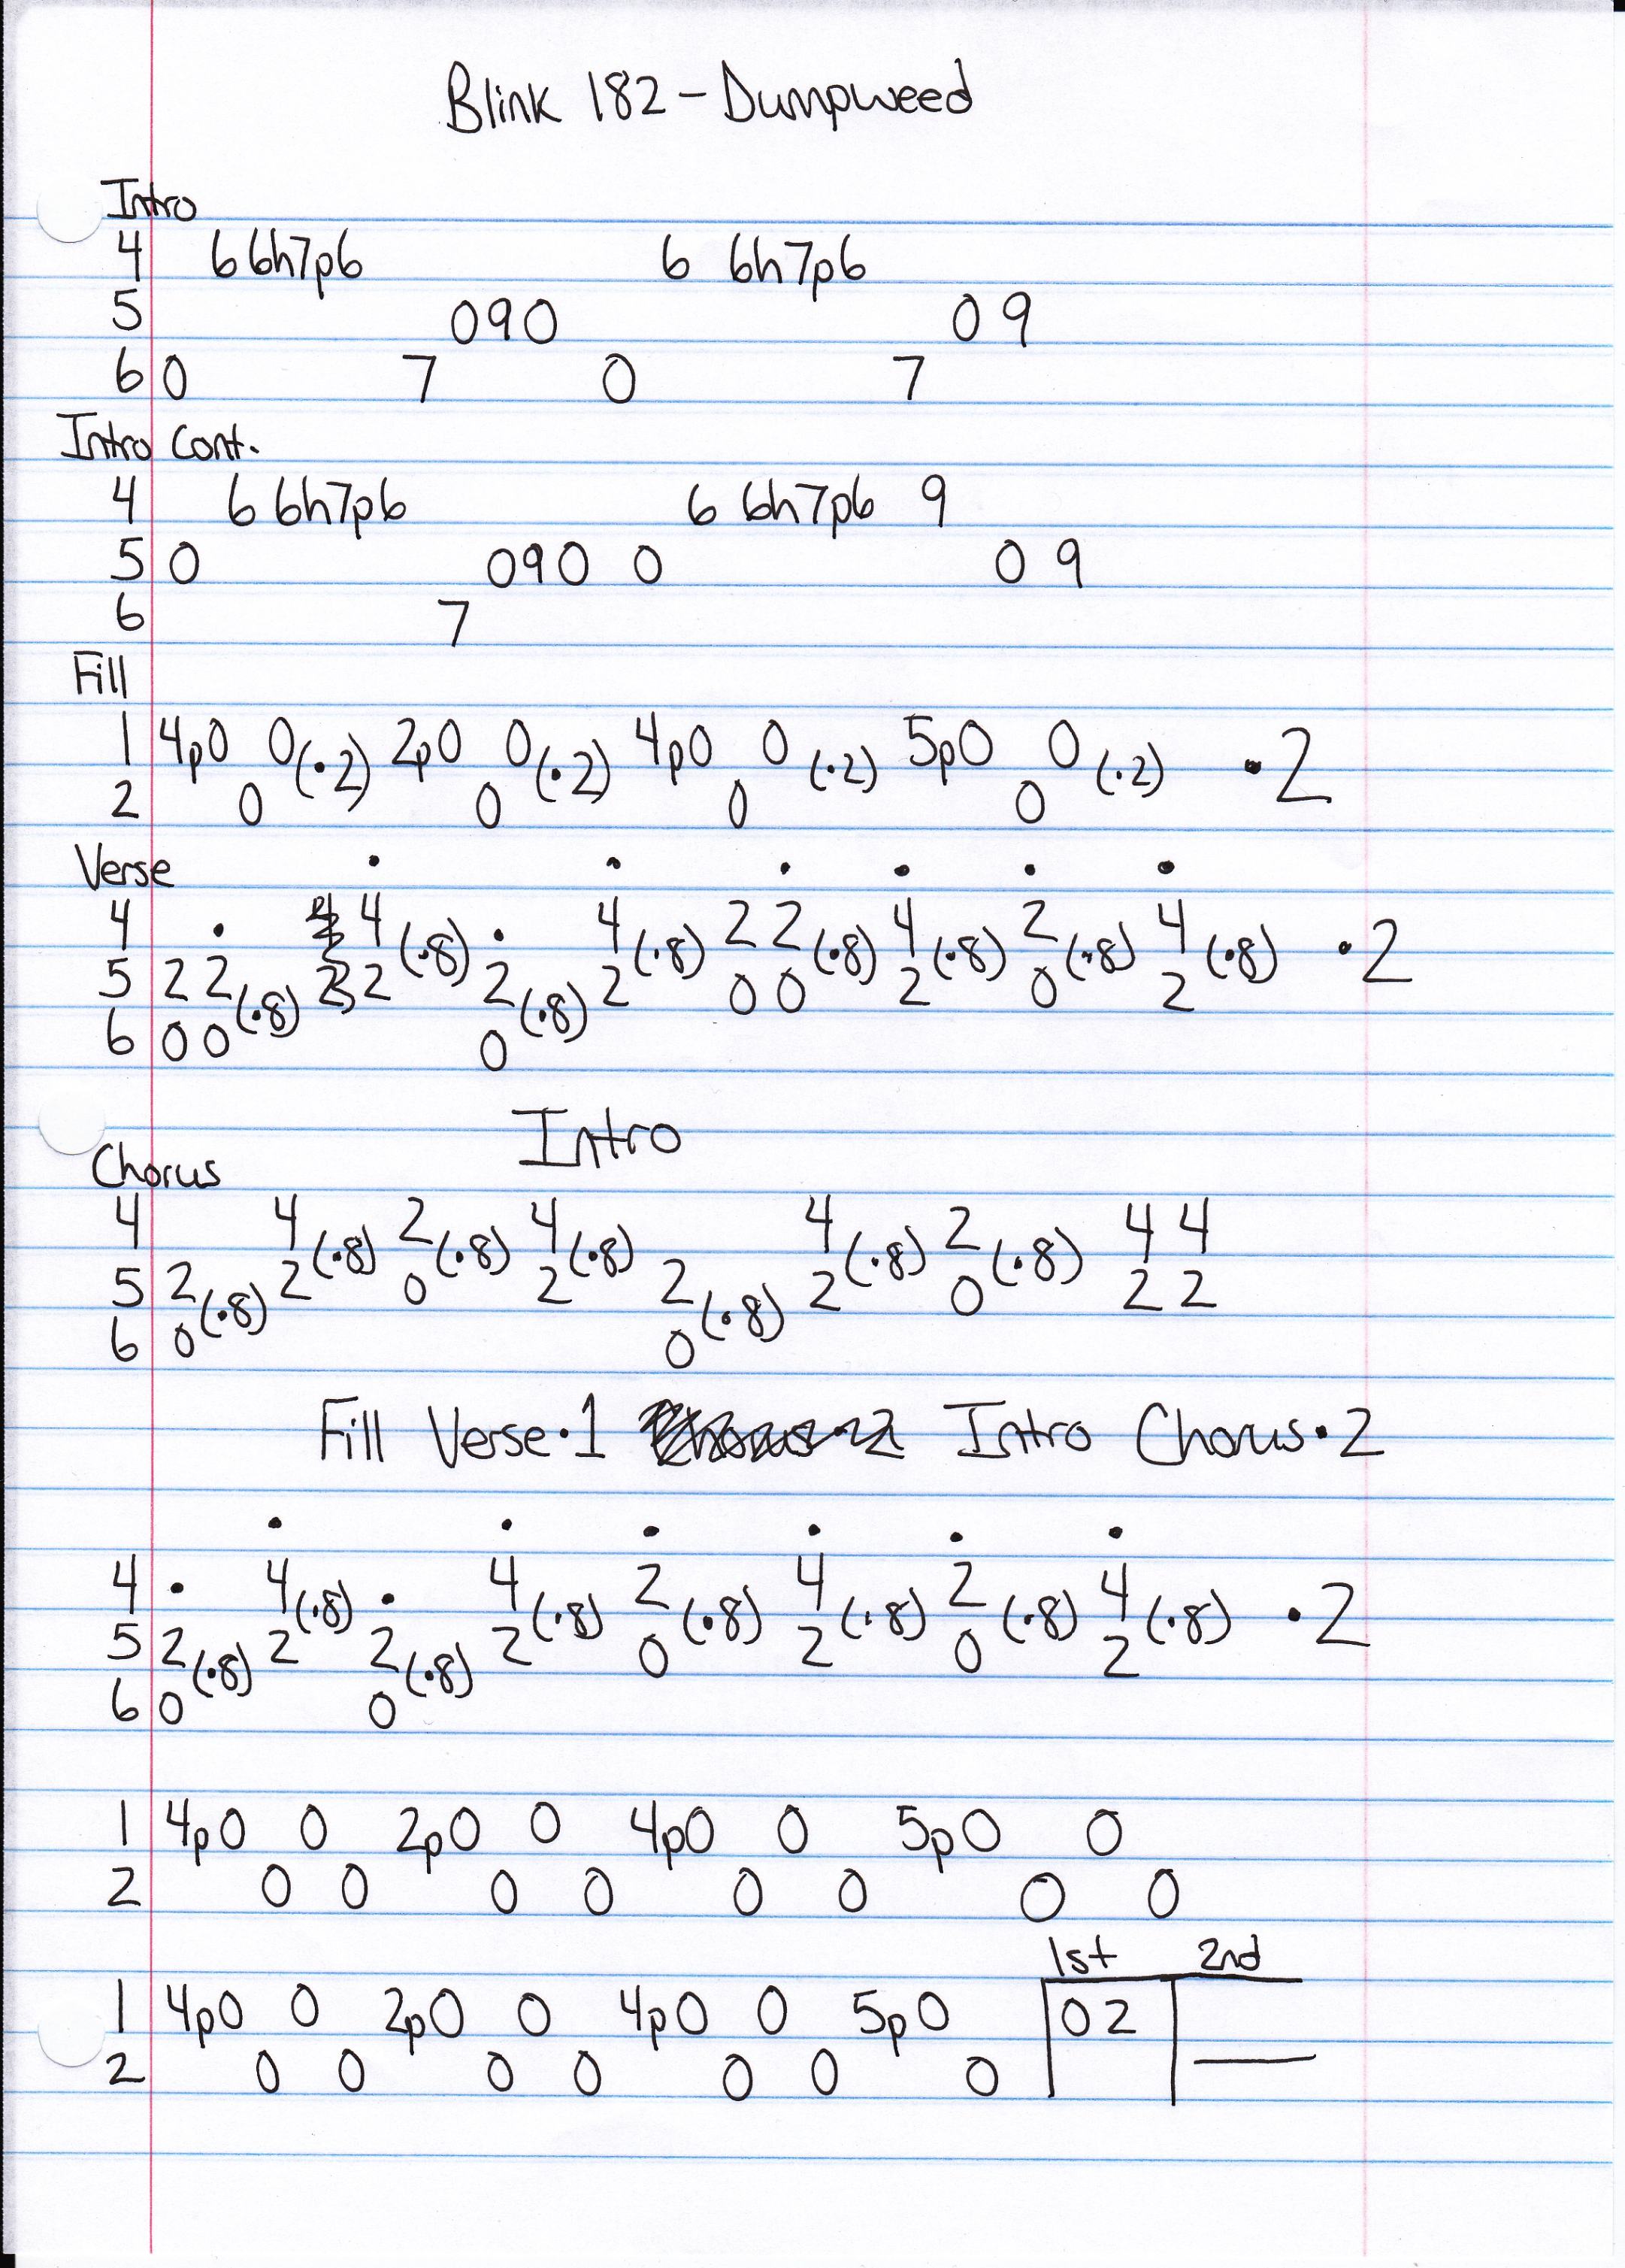 Blink 182 - Dumpweed
Intro
4 6 6h7p6 6 6h7p6
5 090 0 9
6 0 7 0 7
Intro Cont.
4 6 6h7p6 6 6h7p6 9
5 0 090 0 0 9
6 7
Fill
1 4p0 0(·2) 2p0 0(·2) 4p0 0(·2) 5p0 0(·2) ·2
2 0 0 0 0
Verse · · · · · ·
4 · 4(·8) · 4(·8) 2 2(·8) 4(·8) 2(·8) 4(·8) ·2
5 2 2(·8) 2 2(·8) 2 0 0 2 0 2
6 0 0 0
Intro
Chorus
4 4(·8) 2(·8) 4(·8) 4(·8) 2(·8) 4 4
5 2(·8) 2 0 2 2(·8) 2 0 2 2
6 0 0
Fill Verse·1 Intro Chorus·2
· · · · · ·
4 · 4(·8) · 4(·8) 2(·8) 4(·8) 2(·8) 4(·8) ·2
5 2(·8) 2 2(·8) 2 0 2 0 2
6 0 0
1 4p0 0 2p0 0 4p0 0 5p0 0
2 0 0 0 0 0 0 0 0
1st 2nd
1 4p0 0 2p0 0 4p0 0 5p0 0 2
2 0 0 0 0 0 0 0 —